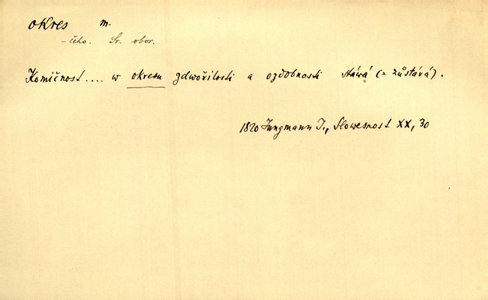 okres m.
-čeho. Sr. obor.
Komičnost .... w okresu zdwořilosti a ozdobnosti stáwá (= zůstává).
1820 Jungmann J., Slowesnost XX, 30